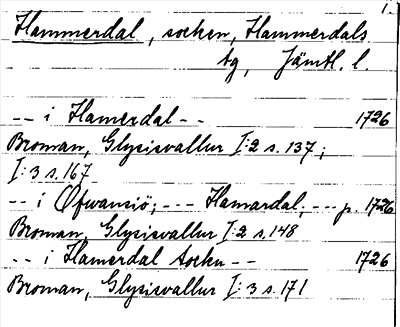 1.
Hammerdal, socken, Hammerdals
tg, Jämtl. l.
-- i Hamerdal -- 1726
Broman, Glysisvallur I:2 s. 137;
I:3 s. 167
-- i Ofwansiö; --- Hamardal, --- p. 1726
Broman, Glysisvallur I:2 s. 148
-- i Hamerdal Sockn -- 1726
Broman, Glysisvallur I:3 s. 171